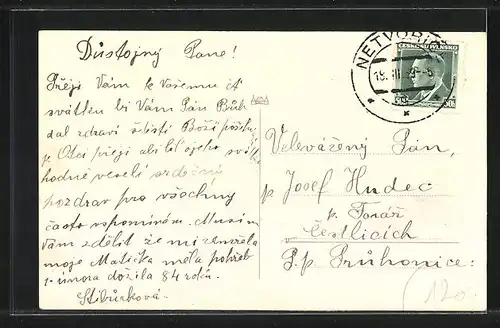 Důstojný Pane!
Přeji Vám k Vašemu
svátku by Vám Pán Bůh
dal zdraví štěstí Boží
p. Otci přeji aby
hodně veselé srdečný
pozdrav pro všechny
často vspomínám. Musím
Vám zdělit že mi zemřela
moje Matička měla pohřeb
1. února dožila 84 roků.
Stibůrková.
NETVOŘI
19. III. 39-8
ČESKOSLOVENSKO
Velevážený Pán,
p. Josef Hudec
p. Farář
v Čestlicích
P.p. Průhonice:
120.